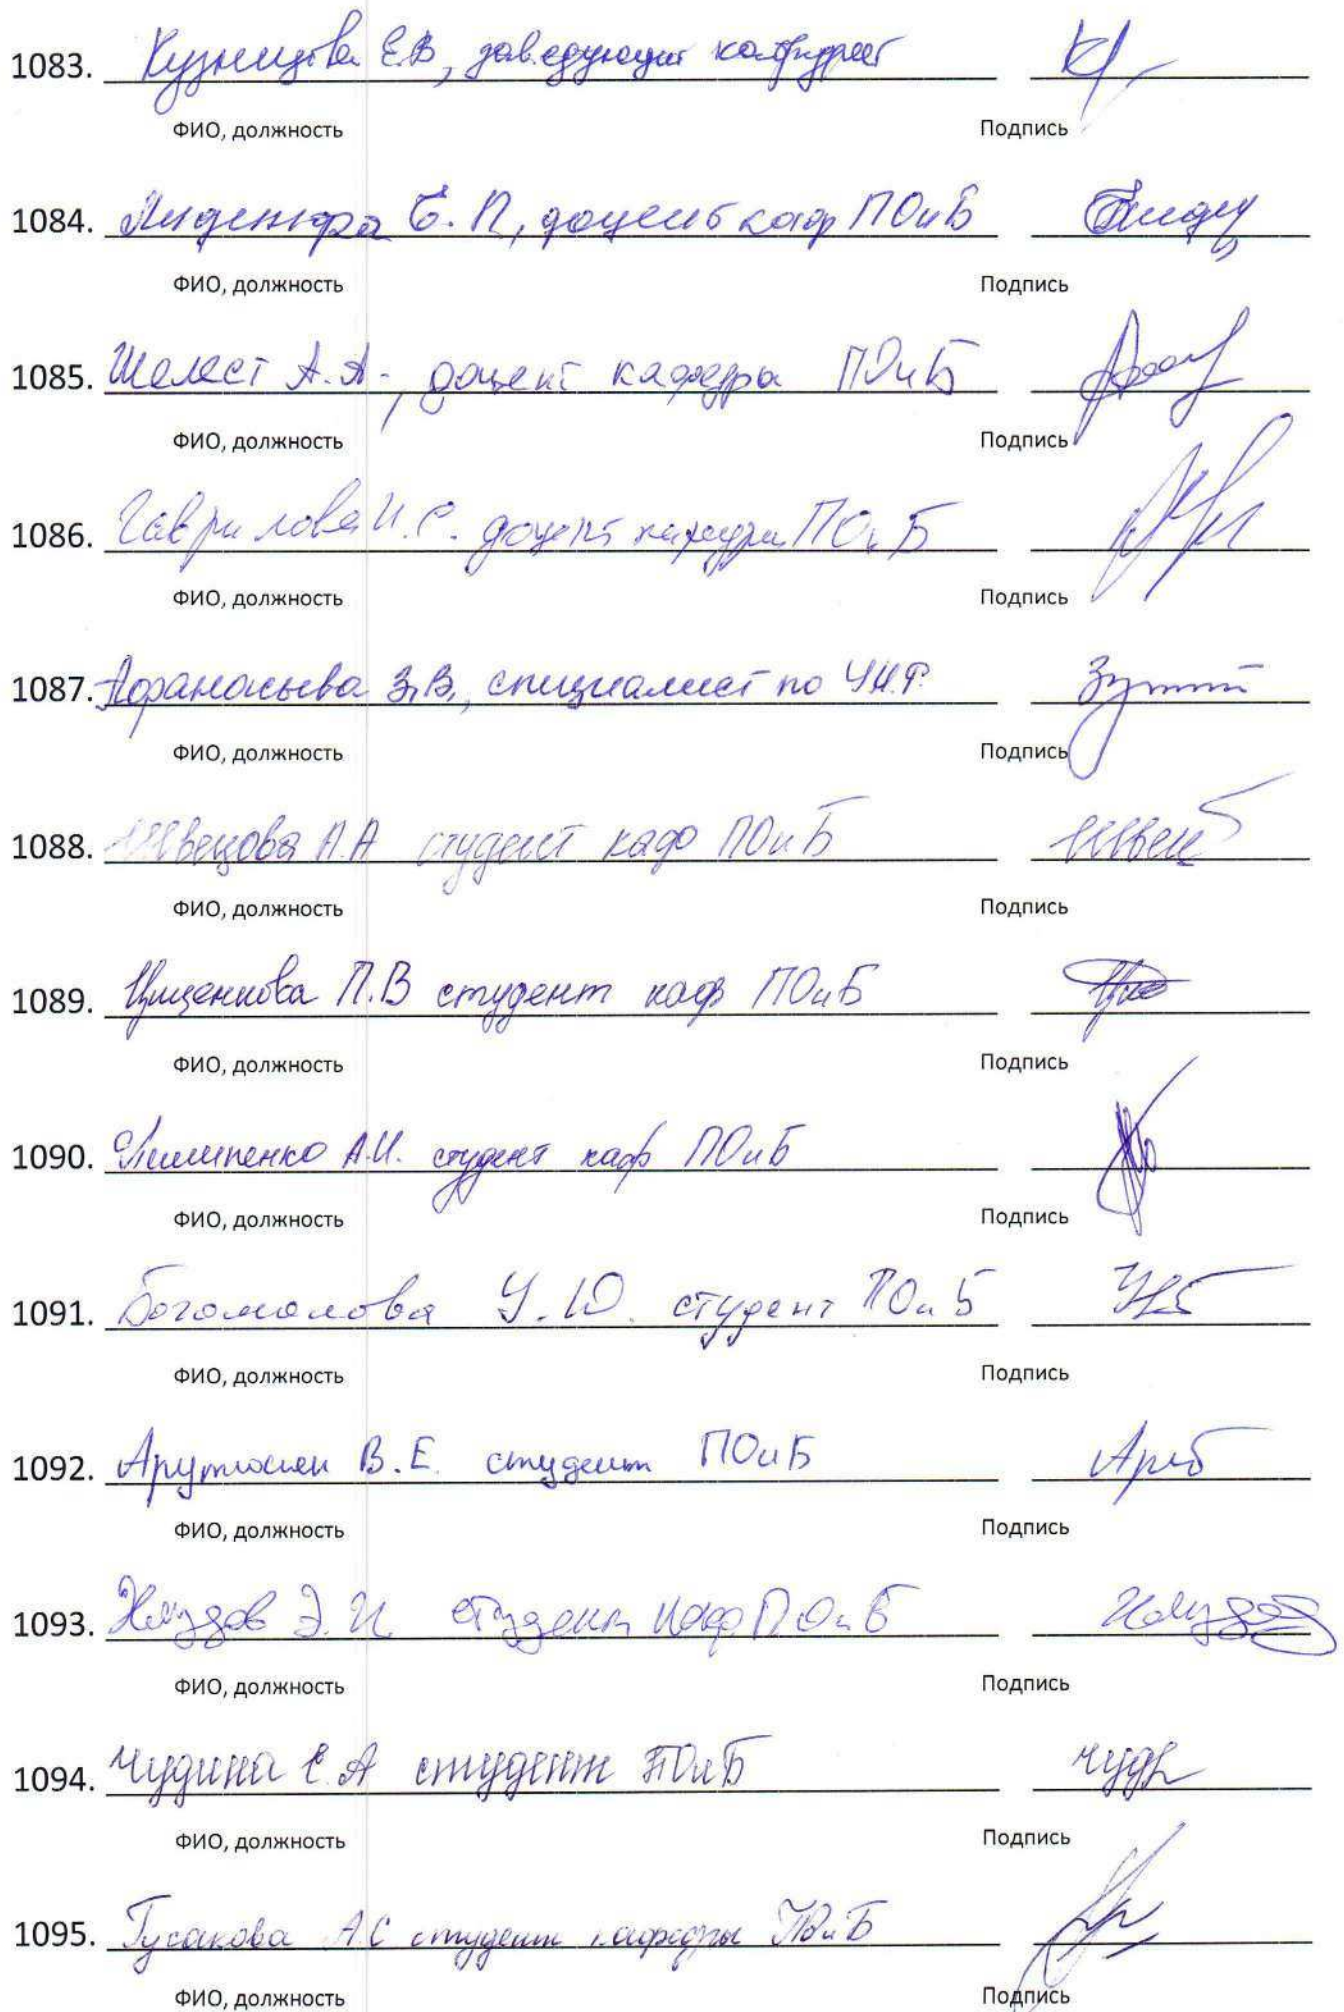 1083. Кузнецова Е.В, заведующий кафедрой
ФИО, должность Подпись
1084. Е.П, доцент каф ПОиБ
ФИО, должность Подпись
1085. Шелест А.А., доцент кафедры ПОиБ
ФИО, должность Подпись
1086. Гаврилова И.С. доцент кафедры ПОиБ
ФИО, должность Подпись
1087. Афанасьева З.В., специалист по
ФИО, должность Подпись
1088. Швецова А.А студент каф ПОиБ
ФИО, должность Подпись
1089. П.В студент каф ПОиБ
ФИО, должность Подпись
1090. А.И. студент каф ПОиБ
ФИО, должность Подпись
1091. Богомолова У.Ю. студент ПОиБ
ФИО, должность Подпись
1092. Арутюнян В.Е. студент ПОиБ
ФИО, должность Подпись
1093. Э.И студент каф ПОиБ
ФИО, должность Подпись
1094. Чудина Е.А студент ПОиБ чуд
ФИО, должность Подпись
1095. Гусакова А.С студент кафедры ПОиБ
ФИО, должность Подпись